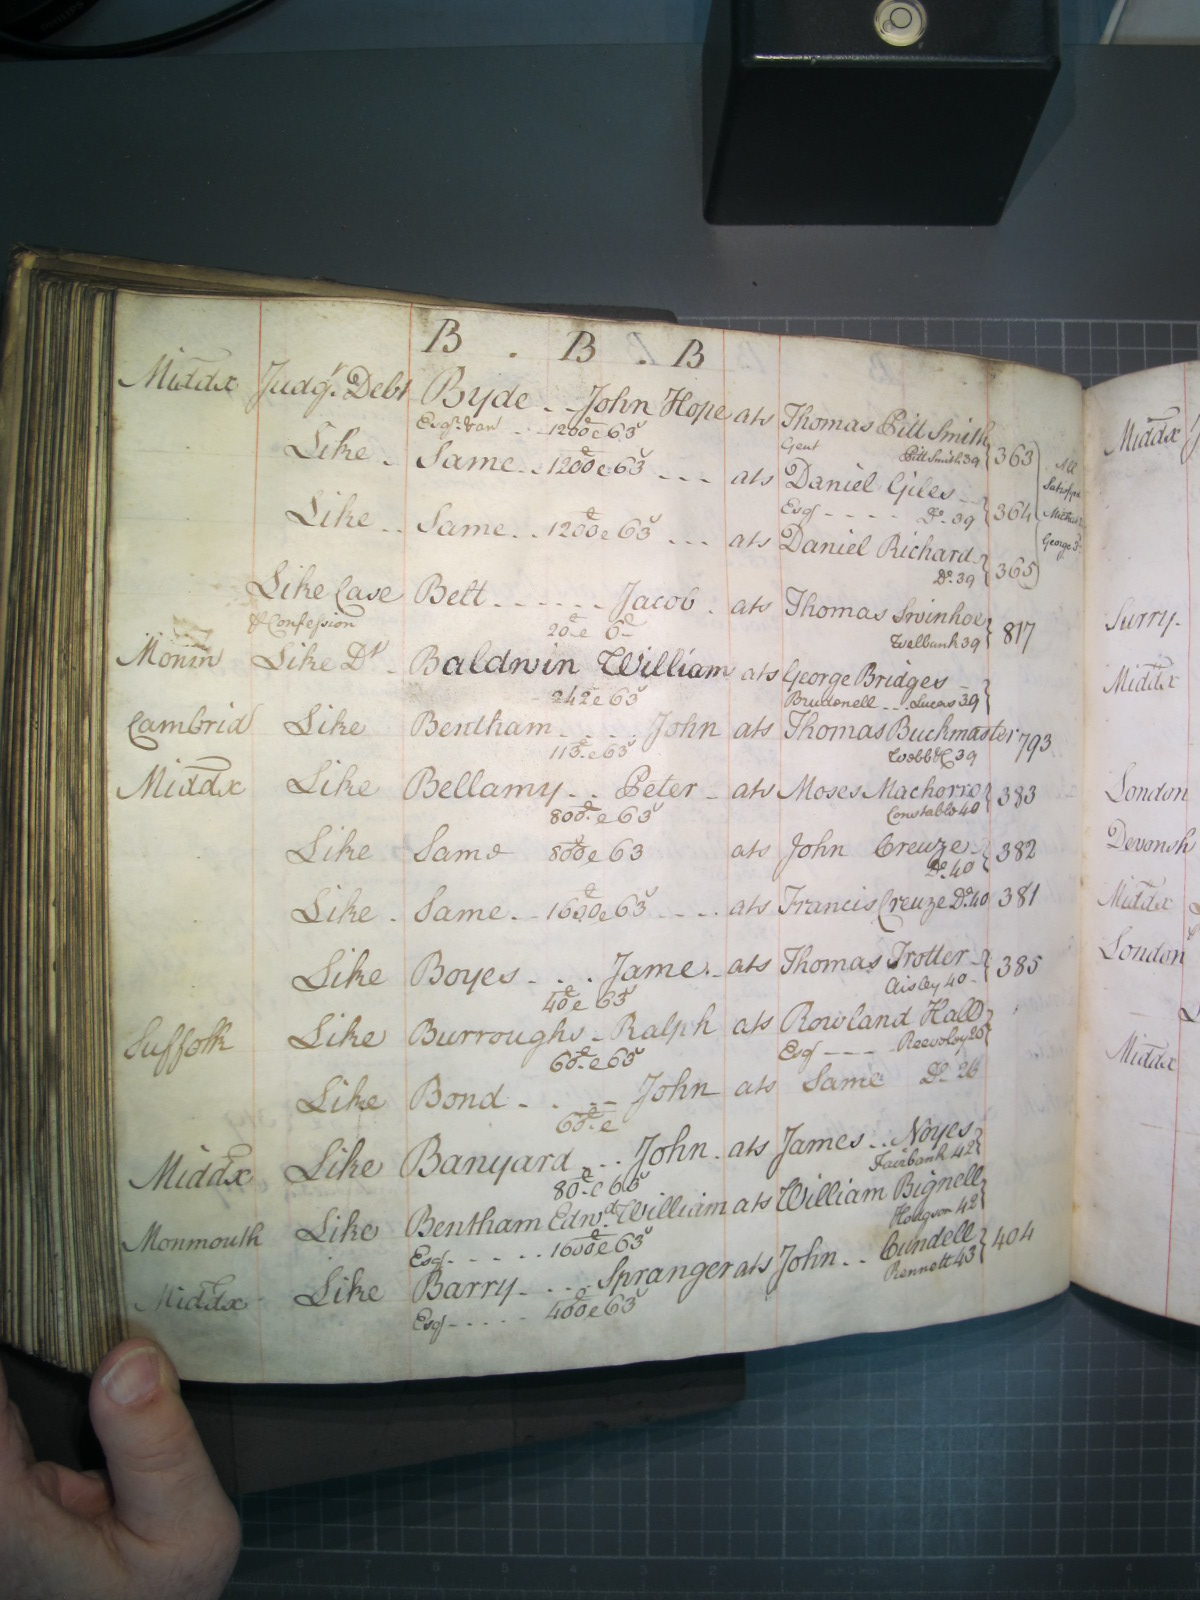 B . B . B
Middx Judgt. Debt Byde - - John Hope ats Thomas Pitt Smith
Esqr. & an - - 1200 e 63s Gent Pitt Smith 39 } 363
Like - Same - - 1200 e 63 - - - ats Daniel Giles - -
Esqr - - - - Do. 39 } 364
Like - - Same - - 1200 e 63s - - - ats Daniel Richard -
Do. 39 } 365
All
Satisfyed
Michs
George 3d.
Like Case Bett - - - - - - Jacob . ats Thomas Irvinhoe
& Confession 20 e 6d Welbank 39 } 817
Monm Like Dt - Baldwin William ats George Bridges -
242 e 63s Brudenell - - - Lucas 39 }
Cambrid Like Bentham - - - - John ats Thomas Buckmaster 793
113 e 63s Webb & C 39
Middx Like Bellamy - - Peter - ats Moses Machorro } 383
800 e 63s Constable 40
Like Same 800 e 63 ats John Creuze - } 382
Do. 40
Like - Same - - 1600 e 63s - - - - ats Francis Creuze Do. 40 381
Like Boyes - - - - Jame - - ats Thomas Trotter - } 385
40 e 63s Aisley 40 -
Suffolk Like Burroughs - Ralph ats Rowland Hall
60 e 63s Esqr - - - - 26 }
Like Bond - - - - John ats Same Do. 26
60 e
Middx Like Banyard - - - John - ats James - - Noyes
80 e 63s Fairbank 42 }
Monmouth Like Bentham Edwd. William ats William Bignell
Esqr - - - - - 1600 e 63s Hodgson 42 }
Middx Like Barry - - - - Spranger ats John - - Cundell
Esqr - - - - - 400 e 63s Rennett 43 } 404
Middx
Surry -
Middx
London
Devonsh
Middx
London
Middx